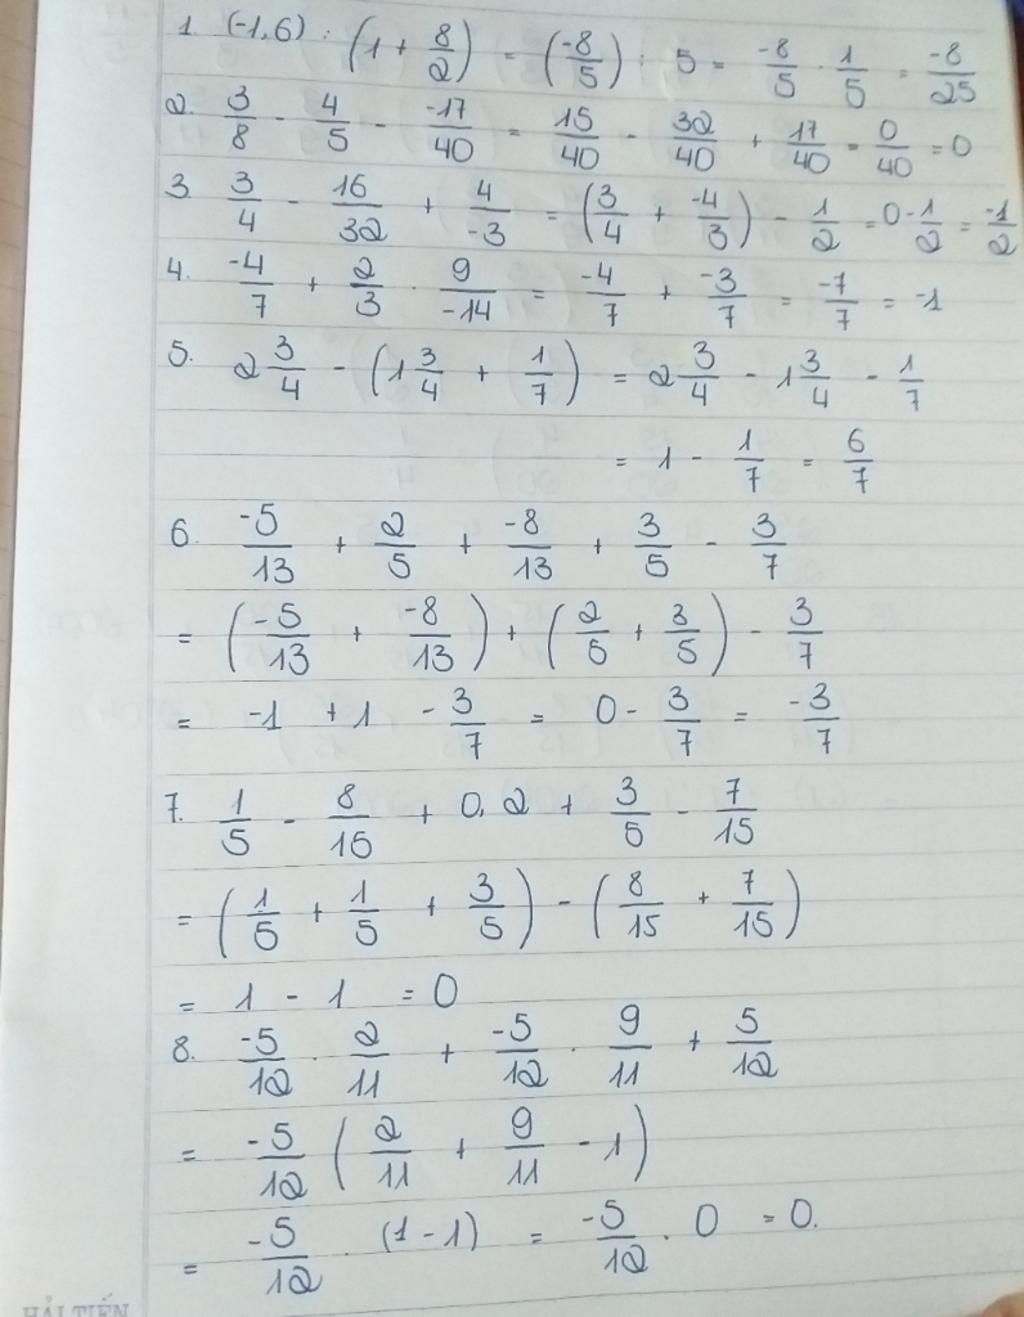 1. (-1,6) : (1 + 8/2) = (-8/5) : 5 = -8/5 . 1/5 = -8/25
2. 3/8 - 4/5 - -17/40 = 15/40 - 32/40 + 17/40 = 0/40 = 0
3. 3/4 - 16/32 + 4/-3 = (3/4 + -4/3) - 1/2 = 0 - 1/2 = -1/2
4. -4/7 + 2/3 . 9/-14 = -4/7 + -3/7 = -7/7 = -1
5. 2 3/4 - (1 3/4 + 1/7) = 2 3/4 - 1 3/4 - 1/7
= 1 - 1/7 = 6/7
6. -5/13 + 2/5 + -8/13 + 3/5 - 3/7
= (-5/13 + -8/13) + (2/5 + 3/5) - 3/7
= -1 + 1 - 3/7 = 0 - 3/7 = -3/7
7. 1/5 - 8/15 + 0,2 + 3/5 - 7/15
= (1/5 + 1/5 + 3/5) - (8/15 + 7/15)
= 1 - 1 = 0
8. -5/12 . 2/11 + -5/12 . 9/11 + 5/12
= -5/12 (2/11 + 9/11 - 1)
= -5/12 . (1 - 1) = -5/12 . 0 = 0.
HẢI TIẾN